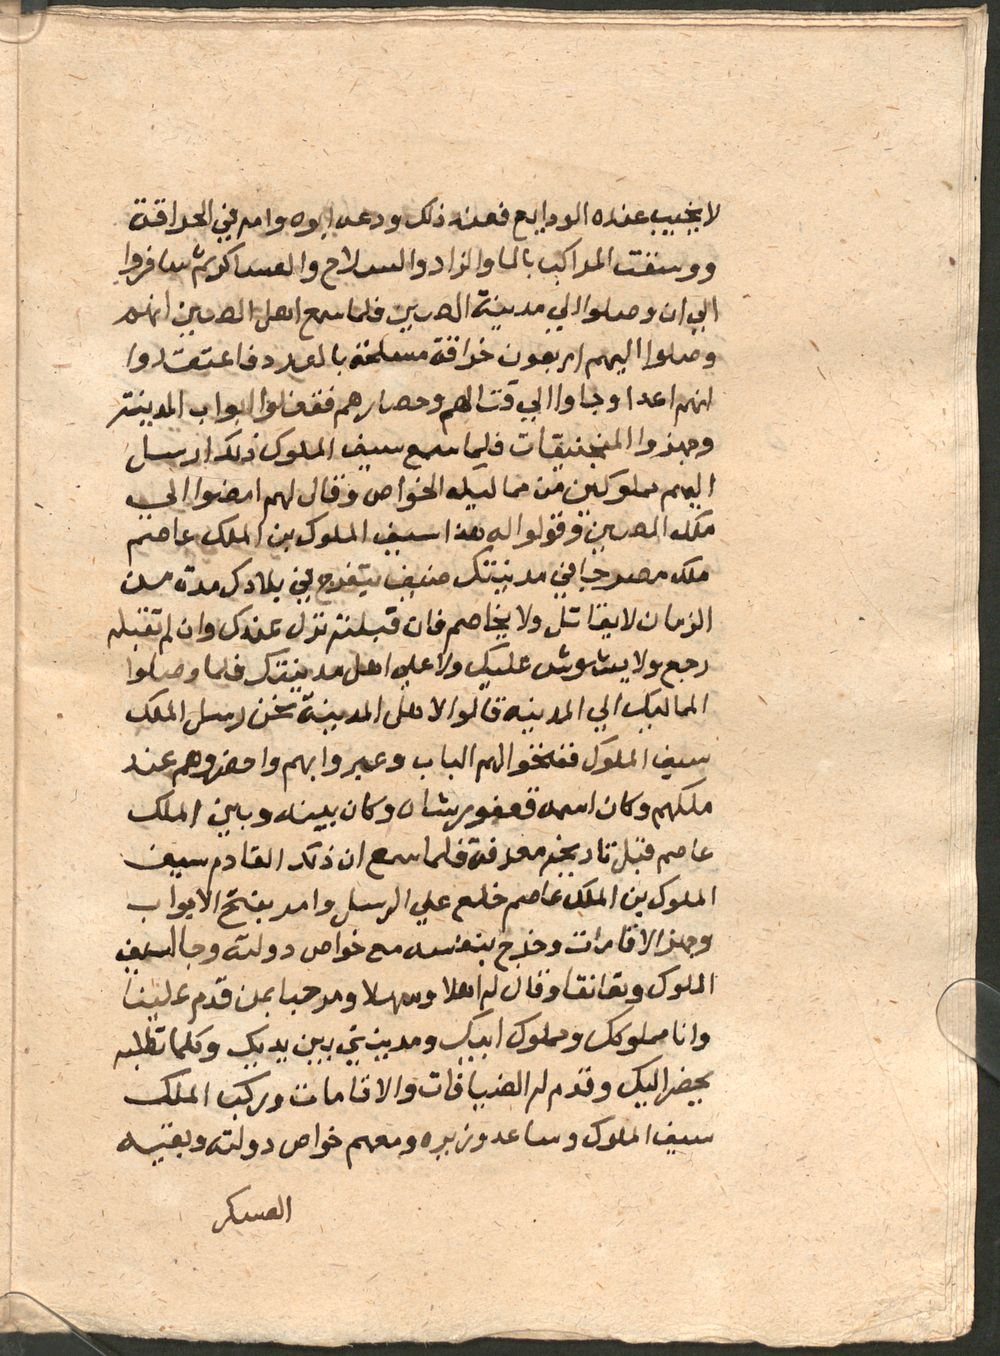 لا يخيب عنده الودايع فعند ذلك ودعه ابوه وامه في الحراقة
ووسقت المراكب بالما والزاد والسلاح والعساكر ثم سافروا
الي ان وصلوا الي مدينة الصين فلما سمع اهل الصين انهم
وصلوا اليهم اربعون خراقة مسلحة بالعدد فاعتقدوا
انهم اعدا وجاوا الي قتالهم وحصارهم فقفلوا ابواب المدينة
وجهزوا المنجنيقات فلما سمع سيف الملوك ذلك ارسل
اليهم مملوكين من مماليكه الخواص وقال لهم امضوا الي
ملك الصين وقولوا له هذا سيف الملوك بن الملك عاصم
ملك مصر جا في مدينتك ضيف يتفرج في بلادك مدة من
الزمان لا يقاتل ولا يخاصم فان قبلته نزل عندك وان لم تقبله
رجع ولا يشوش عليك ولا علي اهل مدينتك فلما وصلوا
المماليك الي المدينه قالوا لاهل المدينة نحن رسل الملك
سيف الملوك ففتحوا لهم الباب وعبروا بهم واحضروهم عند
ملكهم وكان اسمه قعفور شاه وكان بينه وبين الملك
عاصم قبل تاريخه معرفة فلما سمع ان ذلك القادم سيف
الملوك بن الملك عاصم خلع علي الرسل وامر بفتح الابواب
وجهز الاقامات وخرج بنفسه مع خواص دولته وجا لسيف
الملوك وتعانقا وقال له اهلا وسهلا ومرحبا بمن قدم علينا
وانا مملوكك ومملوك ابيك ومدينتي بين يديك وكلما تطلبه
يحضر اليك وقدم له الضيافات والاقامات وركب الملك
سيف الملوك وساعد وزيره ومعهم خواص دولته وبقيه
العسكر